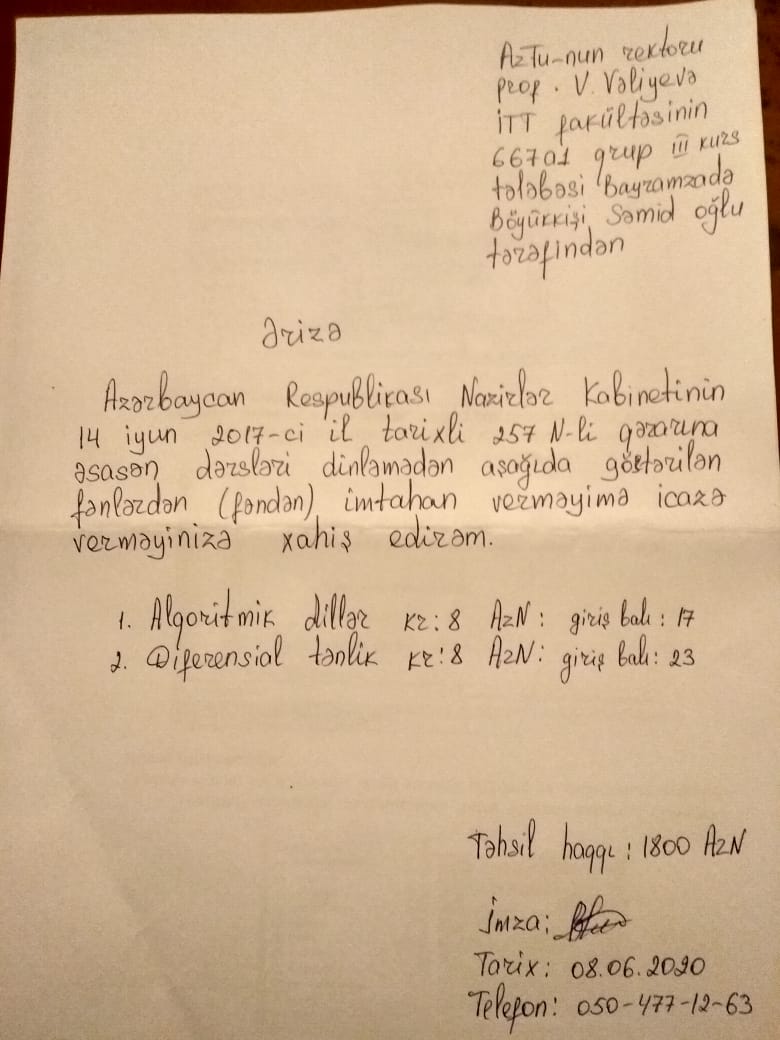 AzTu-nun rektoru
prof. V. Vəliyevə
İTT fakültəsinin
66701 qrup III kurs
tələbəsi Bayramzadə
Böyükkişi Səmid oğlu
tərəfindən
Ərizə
Azərbaycan Respublikası Nazirlər Kabinetinin
14 iyun 2017-ci il tarixli 257 N-li qərarına
əsasən dərsləri dinləmədən aşağıda göstərilən
fənlərdən (fəndən) imtahan verməyimə icazə
verməyinizə xahiş edirəm.
1. Alqoritmik dillər kr: 8 AzN: giriş balı: 17
2. Diferensial tənlik kr: 8 AzN: giriş balı: 23
Təhsil haqqı: 1800 AzN
İmza:
Tarix: 08.06.2020
Telefon: 050-477-12-63